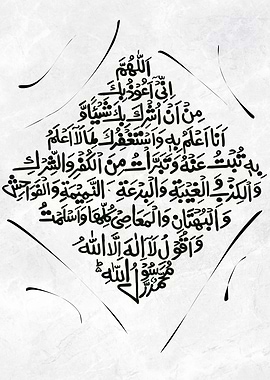 اَللّٰهُمَّ
اِنِّیْ اَعُوْذُ بِكَ
مِنْ اَنْ اُشْرِكَ بِكَ شَيْئًا وَّ
اَنَا اَعْلَمُ بِهٖ وَاَسْتَغْفِرُكَ لِمَا لَا اَعْلَمُ
بِهٖ تُبْتُ عَنْهُ وَتَبَرَّأْتُ مِنَ الْكُفْرِ وَالشِّرْكِ
وَالْكِذْبِ وَالْغِيْبَةِ وَالْبِدْعَةِ النَّمِيْمَةِ وَالْفَوَاحِشِ
وَالْبُهْتَانِ وَالْمَعَاصِیْ كُلِّهَا وَاَسْلَمْتُ
وَاَقُوْلُ لَا اِلٰهَ اِلَّا اللّٰهُ
مُحَمَّدٌ رَّسُوْلُ اللّٰهِ